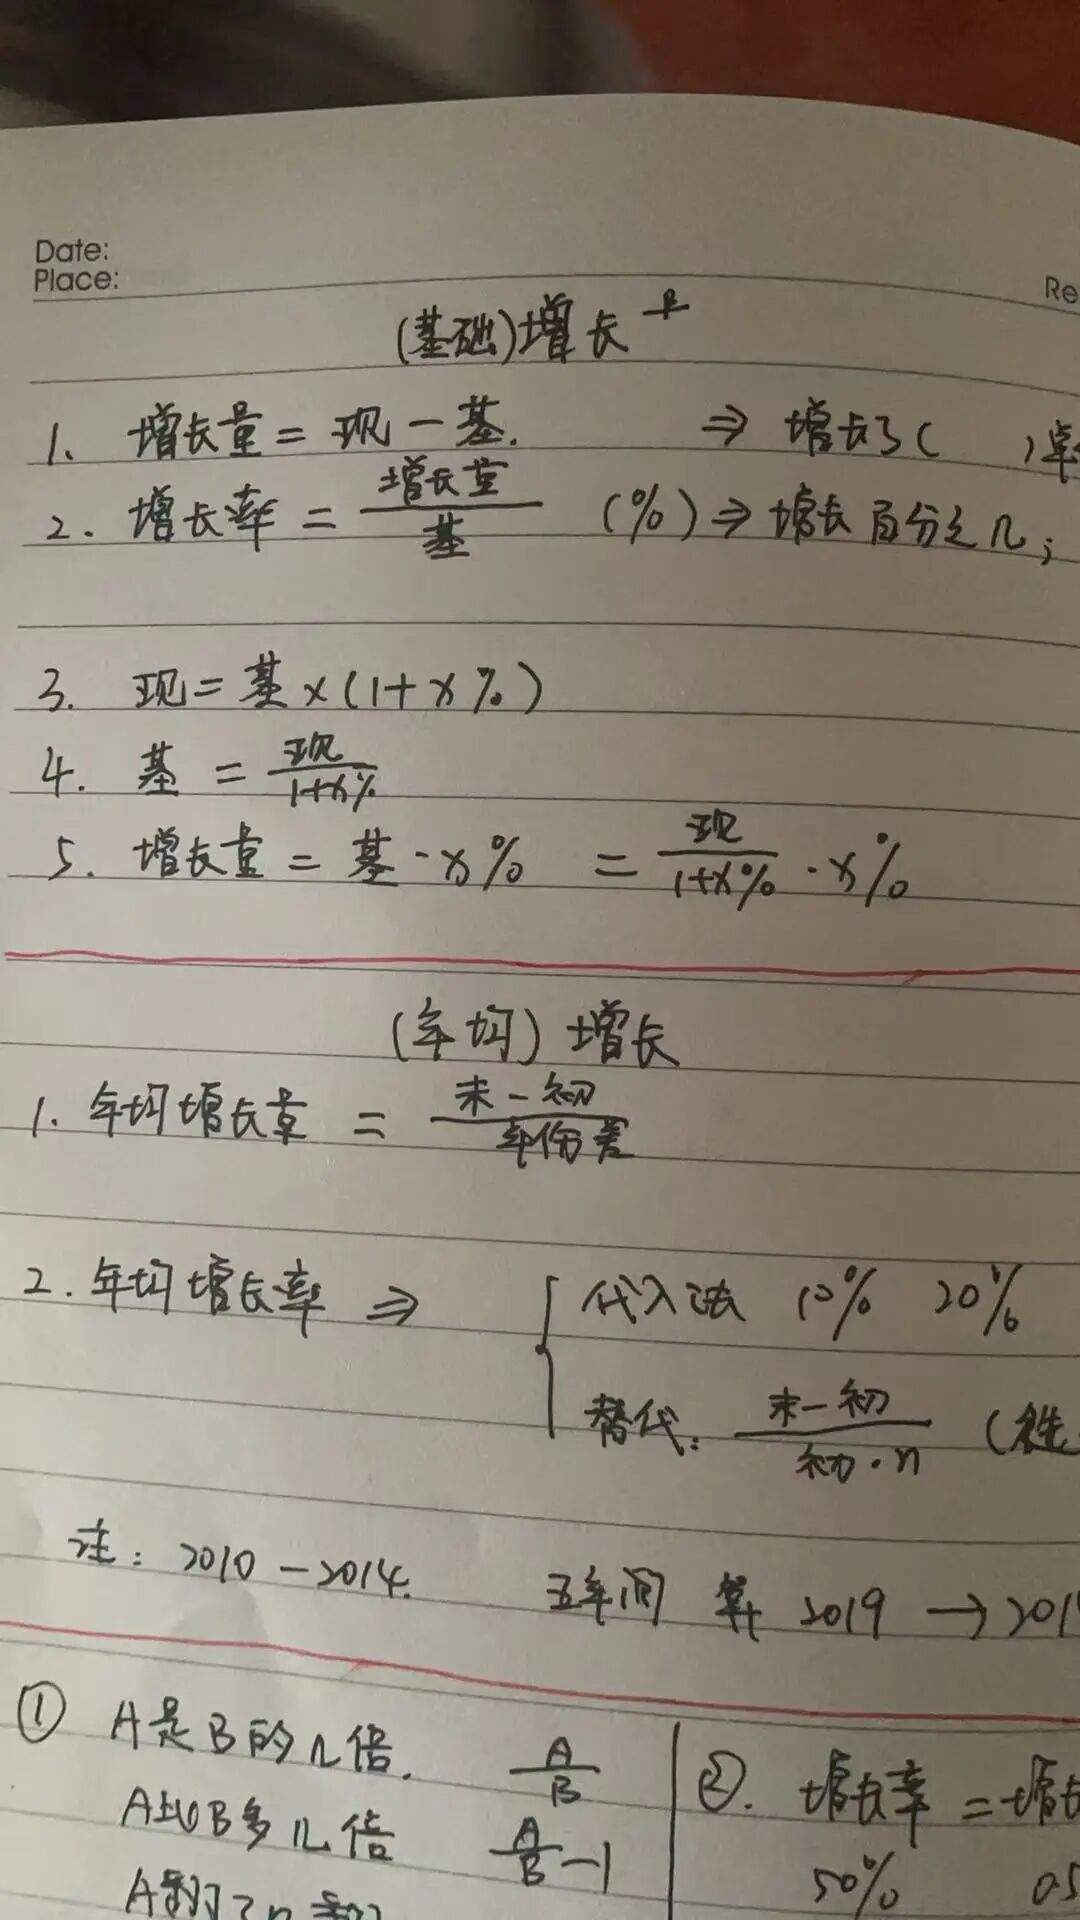 Date:
Place:
Re
(基础)增长
1. 增长量 = 现 - 基. ⇒ 增长了( )
2. 增长率 = 增长量/基 (%) ⇒ 增长百分之几;
3. 现 = 基 × (1+x%)
4. 基 = 现/1+x%
5. 增长量 = 基 · x% = 现/1+x% · x%
(年均) 增长
1. 年均增长量 = 末-初/年份差
2. 年均增长率 ⇒ { 代入法 10% 20%
替代: 末-初/初·n (
注: 2010-2014. 五年间 算 2019 → 201
① A是B的几倍. A/B
② 增长率 = 增长
A比B多几倍 A/B - 1
50% 0.5
A翻了n翻